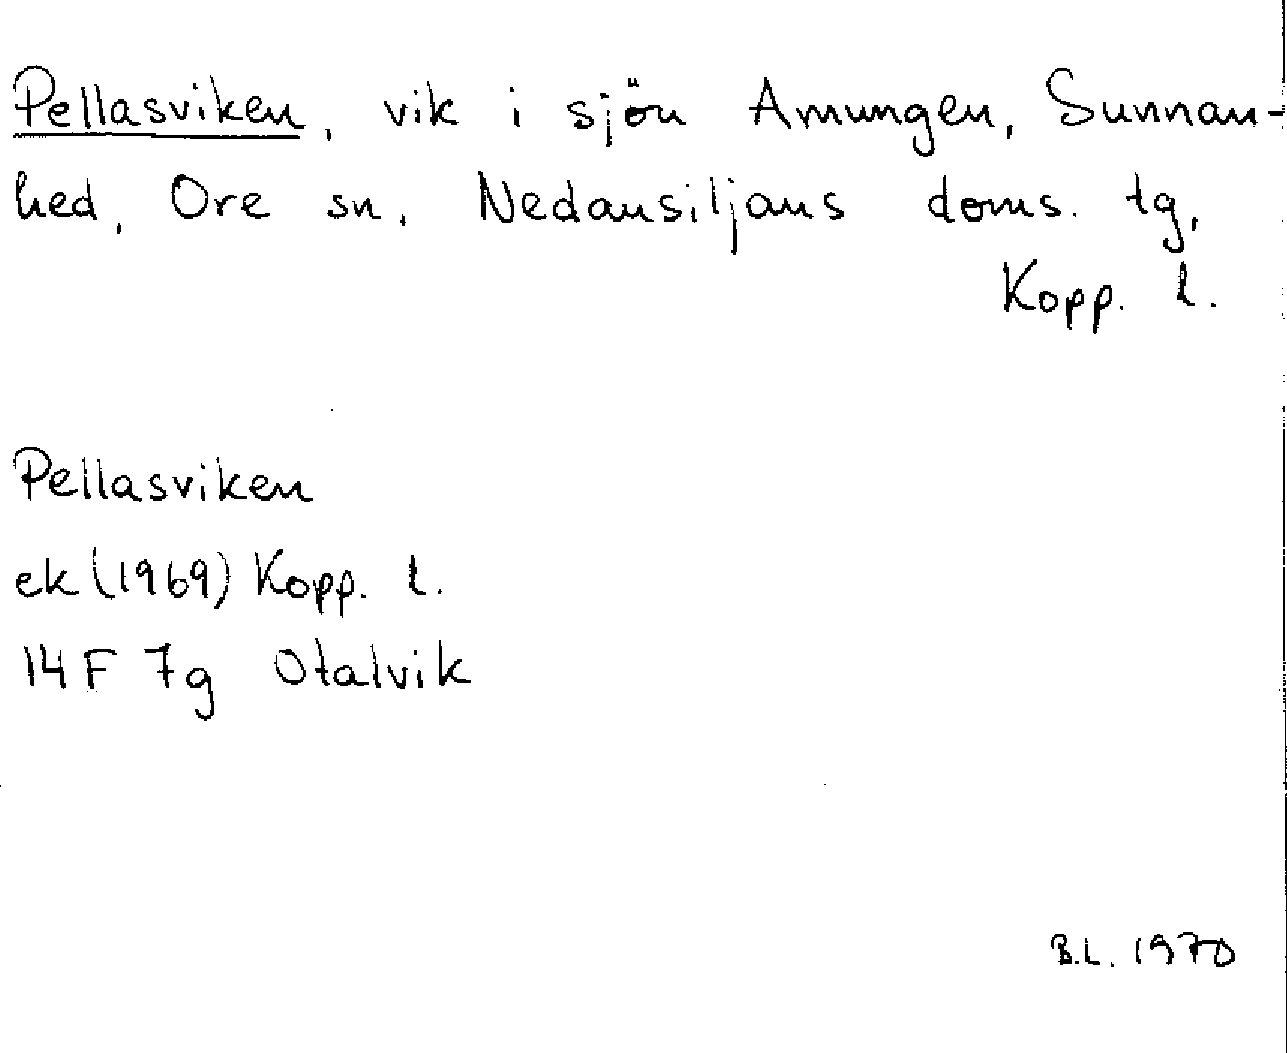 Pellasviken, vik i sjön Amungen, Sunnan-
hed, Ore sn, Nedansiljans doms. tg,
Kopp. l.
Pellasviken
ek (1969) Kopp. l.
14 F 7g Otalvik
B.L. 1970